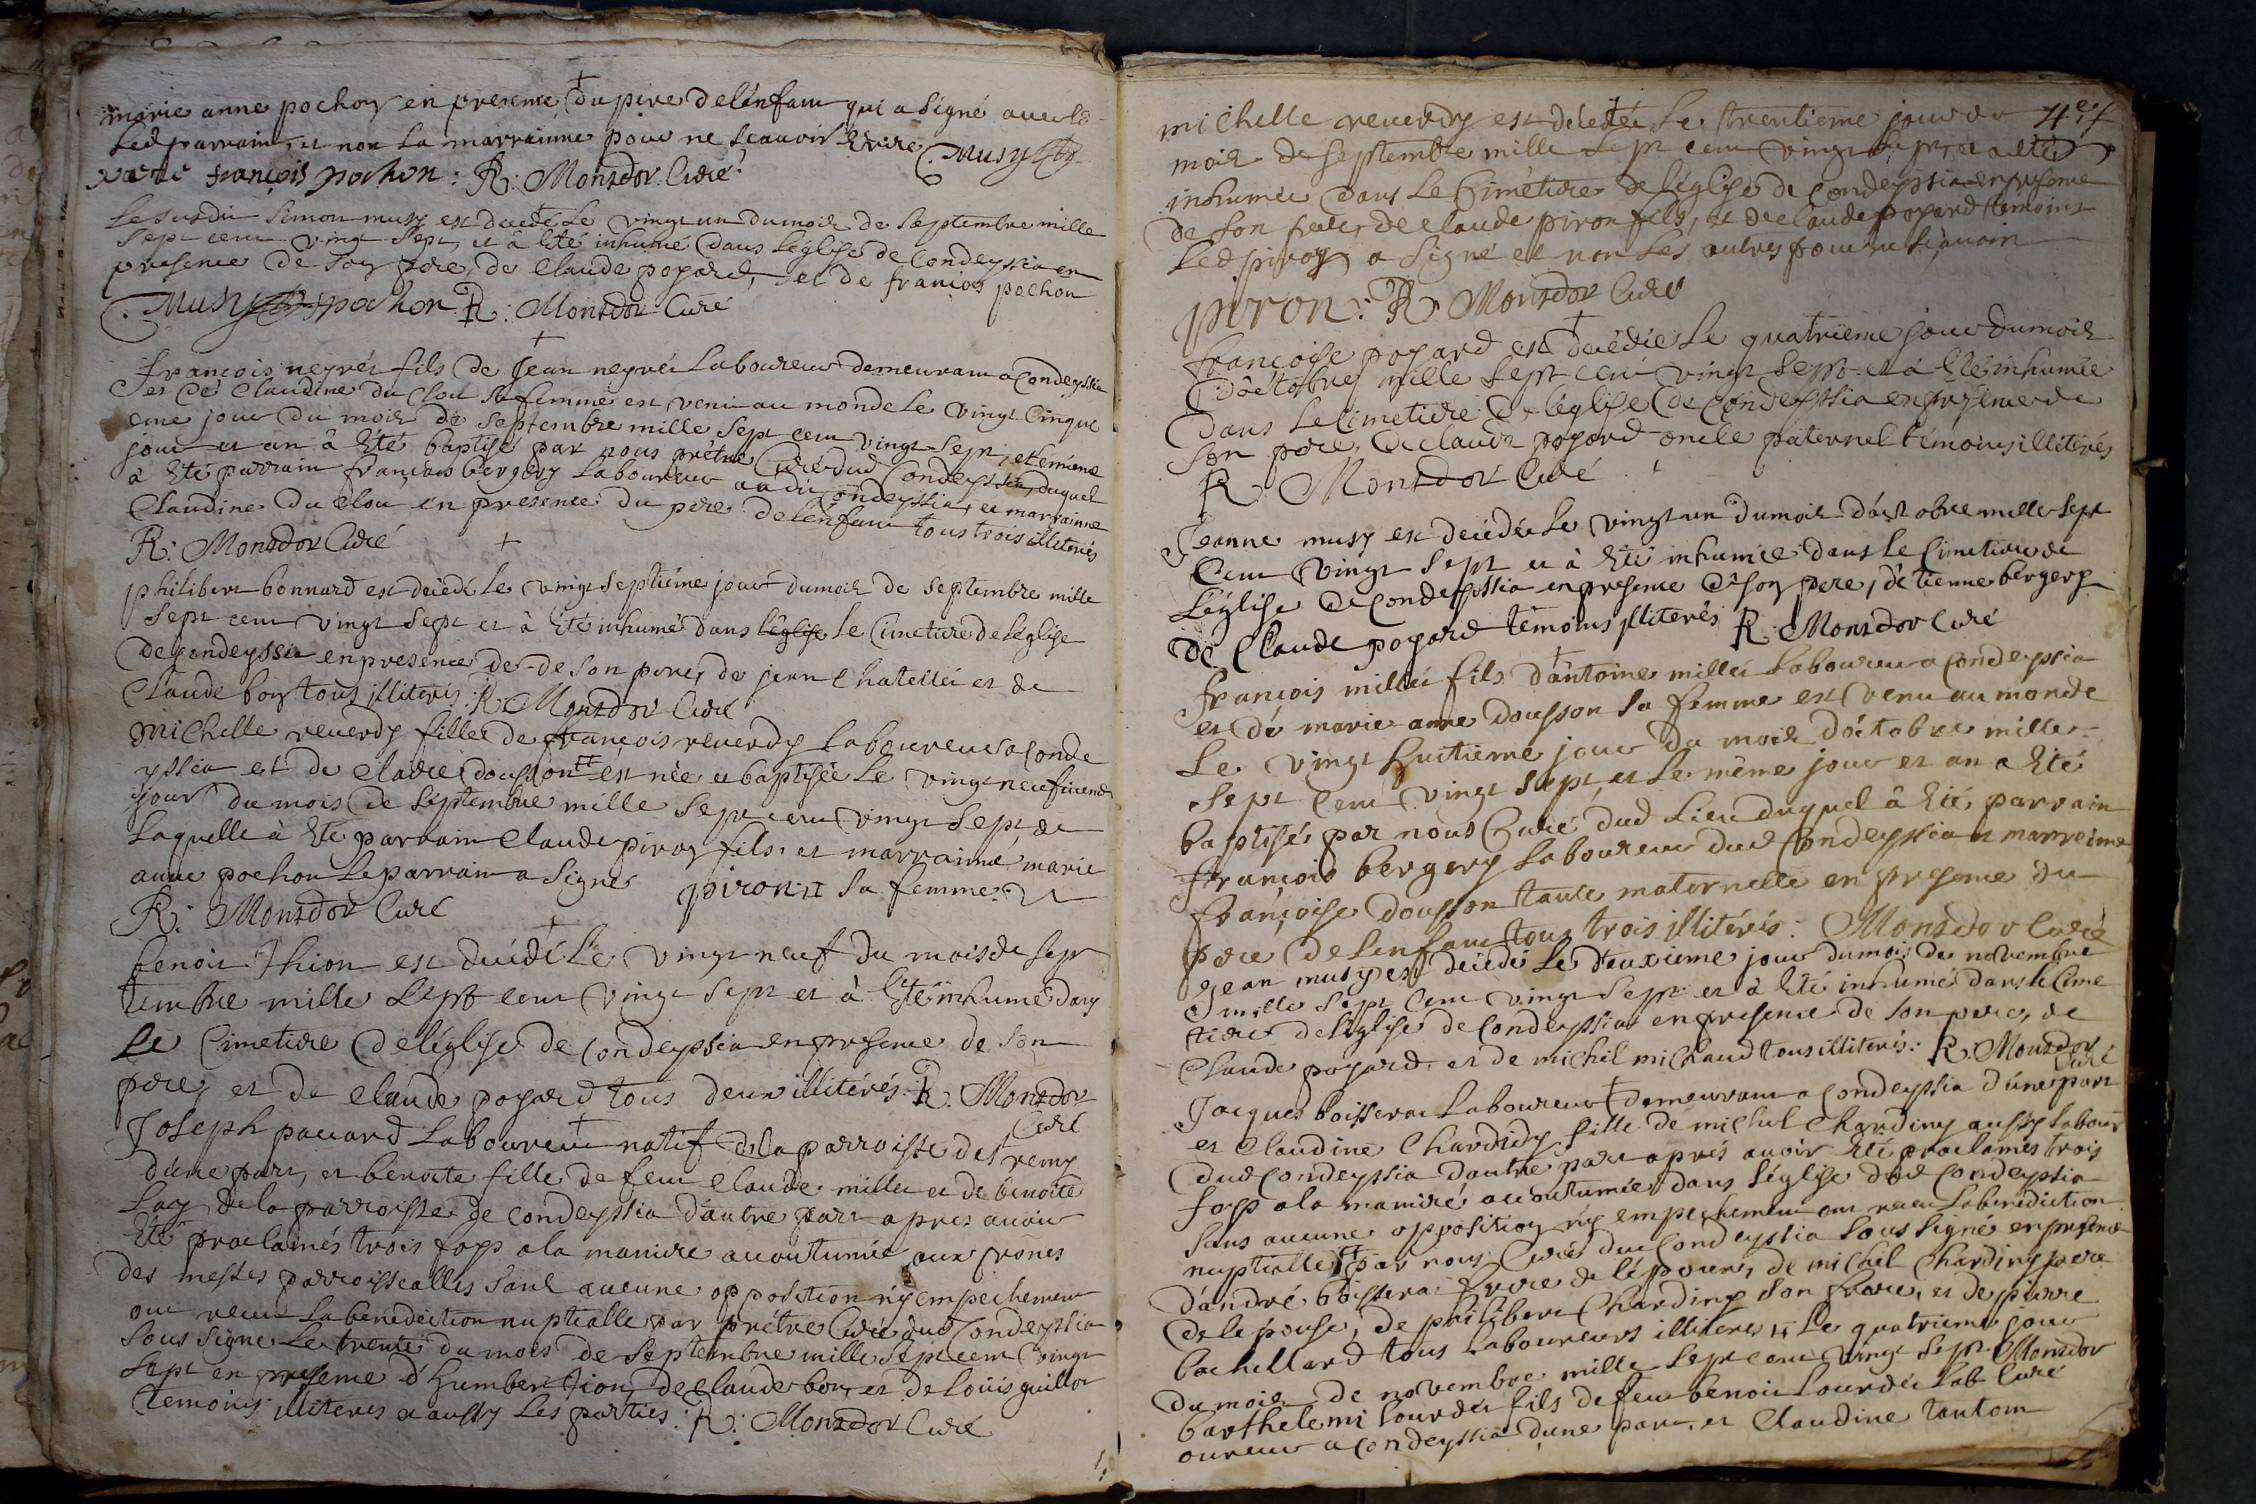 marie anne pochon en presence du pere de lenfant qui a signé avec le
led parrain, et non la marrainne pour ne scauoir Ecrire C. Musy
françois pochon : R: Monsdor Curé
Le susdit simon musy est decedé le vingt un du mois de septembre mille
sept cent vingt sept, et à été inhumé dans l'église de Condeyssia en
presence de son pere, de claude poyard, et de françois pochon
C. Musy pochon R: Monsdor Curé
françois neyret fils de Jean neyret Laboureur demeurant a Condeyssia
et de Claudine du Clou sa femme est venu au monde le vingt Cinqui
eme jour du mois de septembre mille sept cent vingt-sept, et le méme
jour et an à Eté baptisé par nous prêtre Curé dud Condeyssia, duquel
à Eté parrain françois bergery Laboureur audit Condeyssia, et marrainne
Claudine du Clou en presence du pere de lenfant tous trois illiterés
R: Monsdor Curé
philibert bonnard est décédé le vingt septiéme jour du mois de septembre mille
sept cent vingt sept et à Eté inhumé dans l'église le Cimetiere de leglise
de Condeyssia en presence de - de son pere, de jean Chatellet et de
Claude bon tous illiterés : R: Monsdor Curé
Michelle reuerdy fille de françois reuerdy Laboureur a Conde
yssia et de Claire dousson est née et baptisée le vingt neufieme
jour du mois de septembre mille sept cent vingt sept de
Laquelle à Eté parrain Claude piron fils, et marrainne marie
anne pochon Le parrain a signé piron: sa femme.
R: Monsdor Curé
benoit Thion est décédé le vingt neuf du mois de sept
tembre mille sept cent vingt sept et à Eté inhumé dans
le Cimetiere de l'église de Condeyssia en presence de son
pere, et de claude poyard tous deux illiterés. R: Monsdor
Curé
Joseph pauard Laboureur natif de la parroisse de st remy
d'une part, et benoite fille de feu claude millet et de benoite
Lay de la parroisse de Condeyssia d'autre part apres auoir
Eté proclamés trois foys a la maniere accoutumée aux prones
des messes parroissealles sans aucune opposition n'y empechement
ont receu la benediction nuptialle par prêtre Curé dud Condeyssia
sous signé Le trente du mois de septembre mille sept cent vingt
sept en presence d'humbert Tion, de claude bon, et de loüis guillot
temoins illiteres et aussy les parties : R: Monsdor Curé
michelle reuerdy est décédée Le trentieme jour du
mois de septembre mille sept cent vingt sept, et a été
inhumée dans le Cimétiere de l'église de Condeyssia en presence
de son pere, de claude piron fils, et de claude poyard temoins
Led piron a signé et non les autres pour ne scauoir
piron : R: Monsdor Curé
françoise poyard est décédée Le quatrieme jour du mois
d'octobre mille sept cent vingt sept et à Eté inhumée
dans le Cimetiere de l'église de Condeyssia en presence de
son pere, de claude poyard oncle paternel témoins illitérés
R: Monsdor Curé
Jeanne musy est décédée Le vingt un du mois d'octobre mille sept
Cent vingt sept et à Eté inhumée dans le Cimetiere de
L'église de Condeyssia en presence de son pere, d'etienne bergery
de Claude poyard témoins illiterés R: Monsdor Curé
françois millet fils d'antoine millet Laboureur a Condeyssia
et de marie anne dousson sa femme est venu au monde
Le vingt huitieme jour du mois d'octobre mille
sept Cent vingt sept, et le même jour et an a Eté
baptisé par nous Curé dud Lieu duquel à Eté parrain
françois bergery Laboureur dud Condeyssia et marreine
françoise dousson tante maternelle en presence du
pere de lenfant tous trois illitérés : Monsdor Curé
Jean musy est décédé Le deuxieme jour du mois de novembre
mille sept Cent vingt sept et à Eté inhumé dans le Cime
tiere de l'église de Condeyssia en presence de son pere, de
Claude poyard, et de michel michaud tous illiterés : R: Monsdor
Curé
Jacques boisserat Laboureur demeurant a Condeyssia d'une part
et Claudine Chardiny fille de michel Chardiny aussy Labour
dud Condeyssia d'autre part aprés auoir Eté proclamés trois
foys a la maniere accoutumée dans l'église dud Condeyssia
sans aucune opposition n'y empechement ont receu la benediction
nuptialle par nous Curé dud Condeyssia sous signé en presence
d'andré boisserat frere de l'epoux, de michel Chardiny pere
de lepouse, de philibert Chardiny son frere, et de pierre
bachellard tous Laboureurs illiteres, Le quatrieme jour
du mois de novembre mille sept cent vingt sept Monsdor
barthelemi Lourdet fils de feu benoit Lourdet Lab Curé
oureur a Condeyssia d'une part, et Claudine tantom